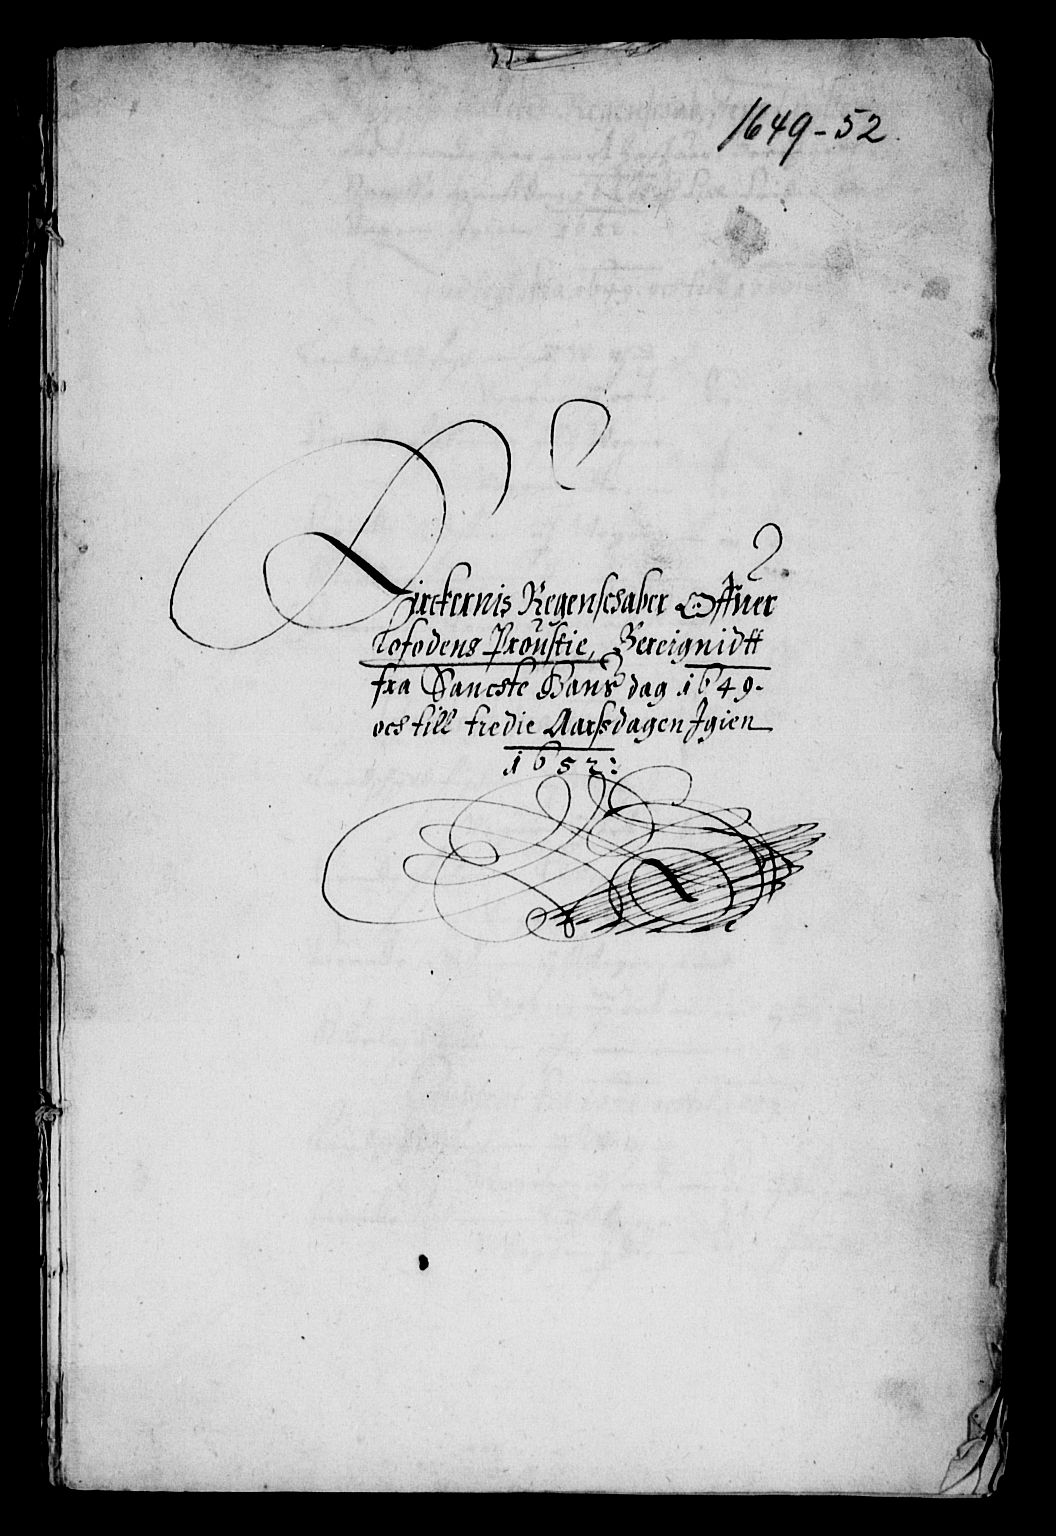 1649-52.
Kirckernis Regenschaber Offuer
Lofodens Proustie, Bereignidtt
fra Sancste Hans dag 1649.
och till tredie Aarsdagen Jgien
1652: